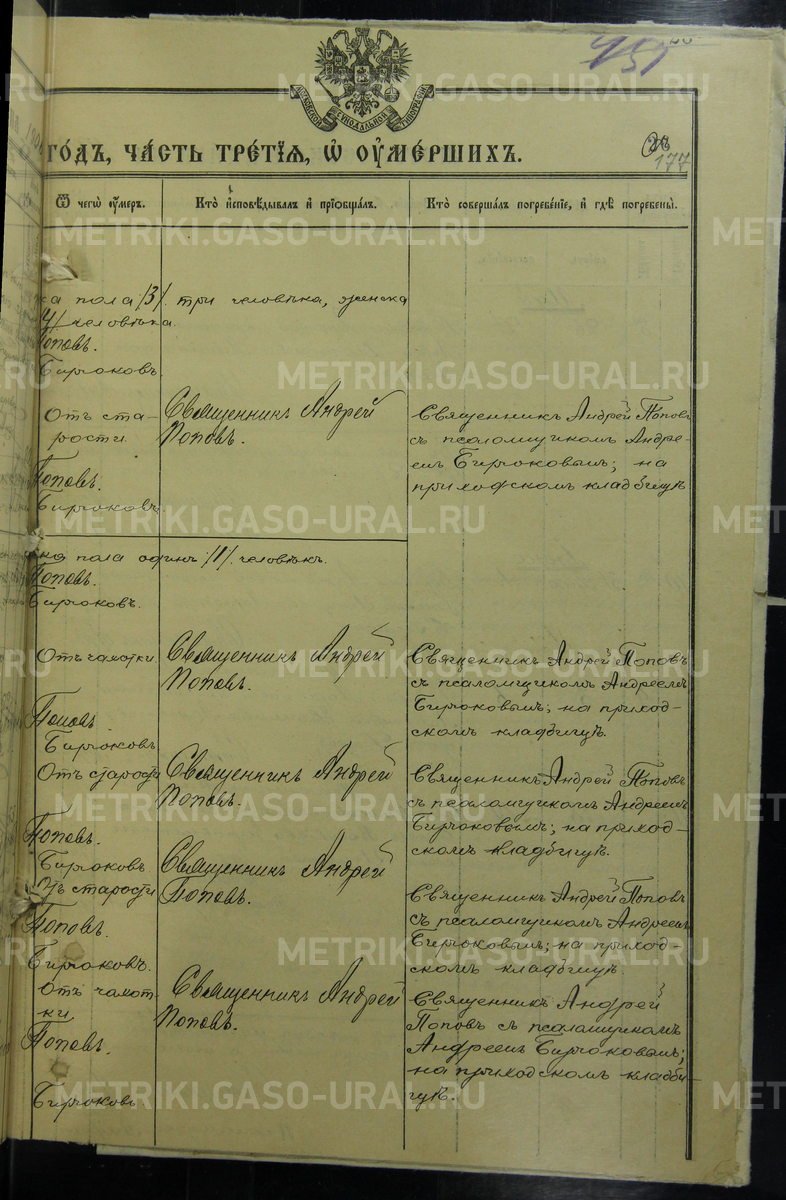 451
МОСКОВСКОЙ СѴНОДАЛЬНОЙ ТИПОГРАФІИ
ГОДЪ, ЧАСТЬ ТРЕТІЯ, Ѡ ОУМЕРШИХЪ.
177
Ѿ чегѡ оумеръ.
Кто исповѣдывалъ и пріобщалъ.
Кто совершалъ погребеніе, и гдѣ погребены.
ка пола /3/. три человѣка, женска
/4/ человѣка.
Поповъ.
Бирюковъ
Отъ ста-
рости.
Священникъ Андрей
Поповъ.
Священникъ Андрей Поповъ
съ псаломщикомъ Андре-
емъ Бирюковымъ; на
приходскомъ кладбищѣ
Поповъ.
Бирюковъ.
ско пола одинъ /1/. человѣкъ.
Поповъ.
Бирюковъ.
Отъ чахотки
Священникъ Андрей
Поповъ.
Священникъ Андрей Поповъ
съ псаломщикомъ Андреемъ
Бирюковымъ; на приход-
скомъ кладбищѣ.
Поповъ
Бирюковъ
Отъ старости
Священникъ Андрей
Поповъ.
Священникъ Андрей Поповъ
съ псаломщикомъ Андреемъ
Бирюковымъ; на приход-
скомъ кладбищѣ.
Поповъ.
Бирюковъ
Отъ старости
Священникъ Андрей
Поповъ.
Священникъ Андрей Поповъ
съ псаломщикомъ Андреемъ
Бирюковымъ; на приход-
скомъ кладбищѣ.
Поповъ.
Бирюковъ.
Отъ чахот-
ки
Священникъ Андрей
Поповъ.
Священникъ Андрей
Поповъ съ псаломщикомъ
Андреемъ Бирюковымъ;
на приходскомъ кладби-
щѣ.
Поповъ.
Бирюковъ
METRIKI.GASO-URAL.RU